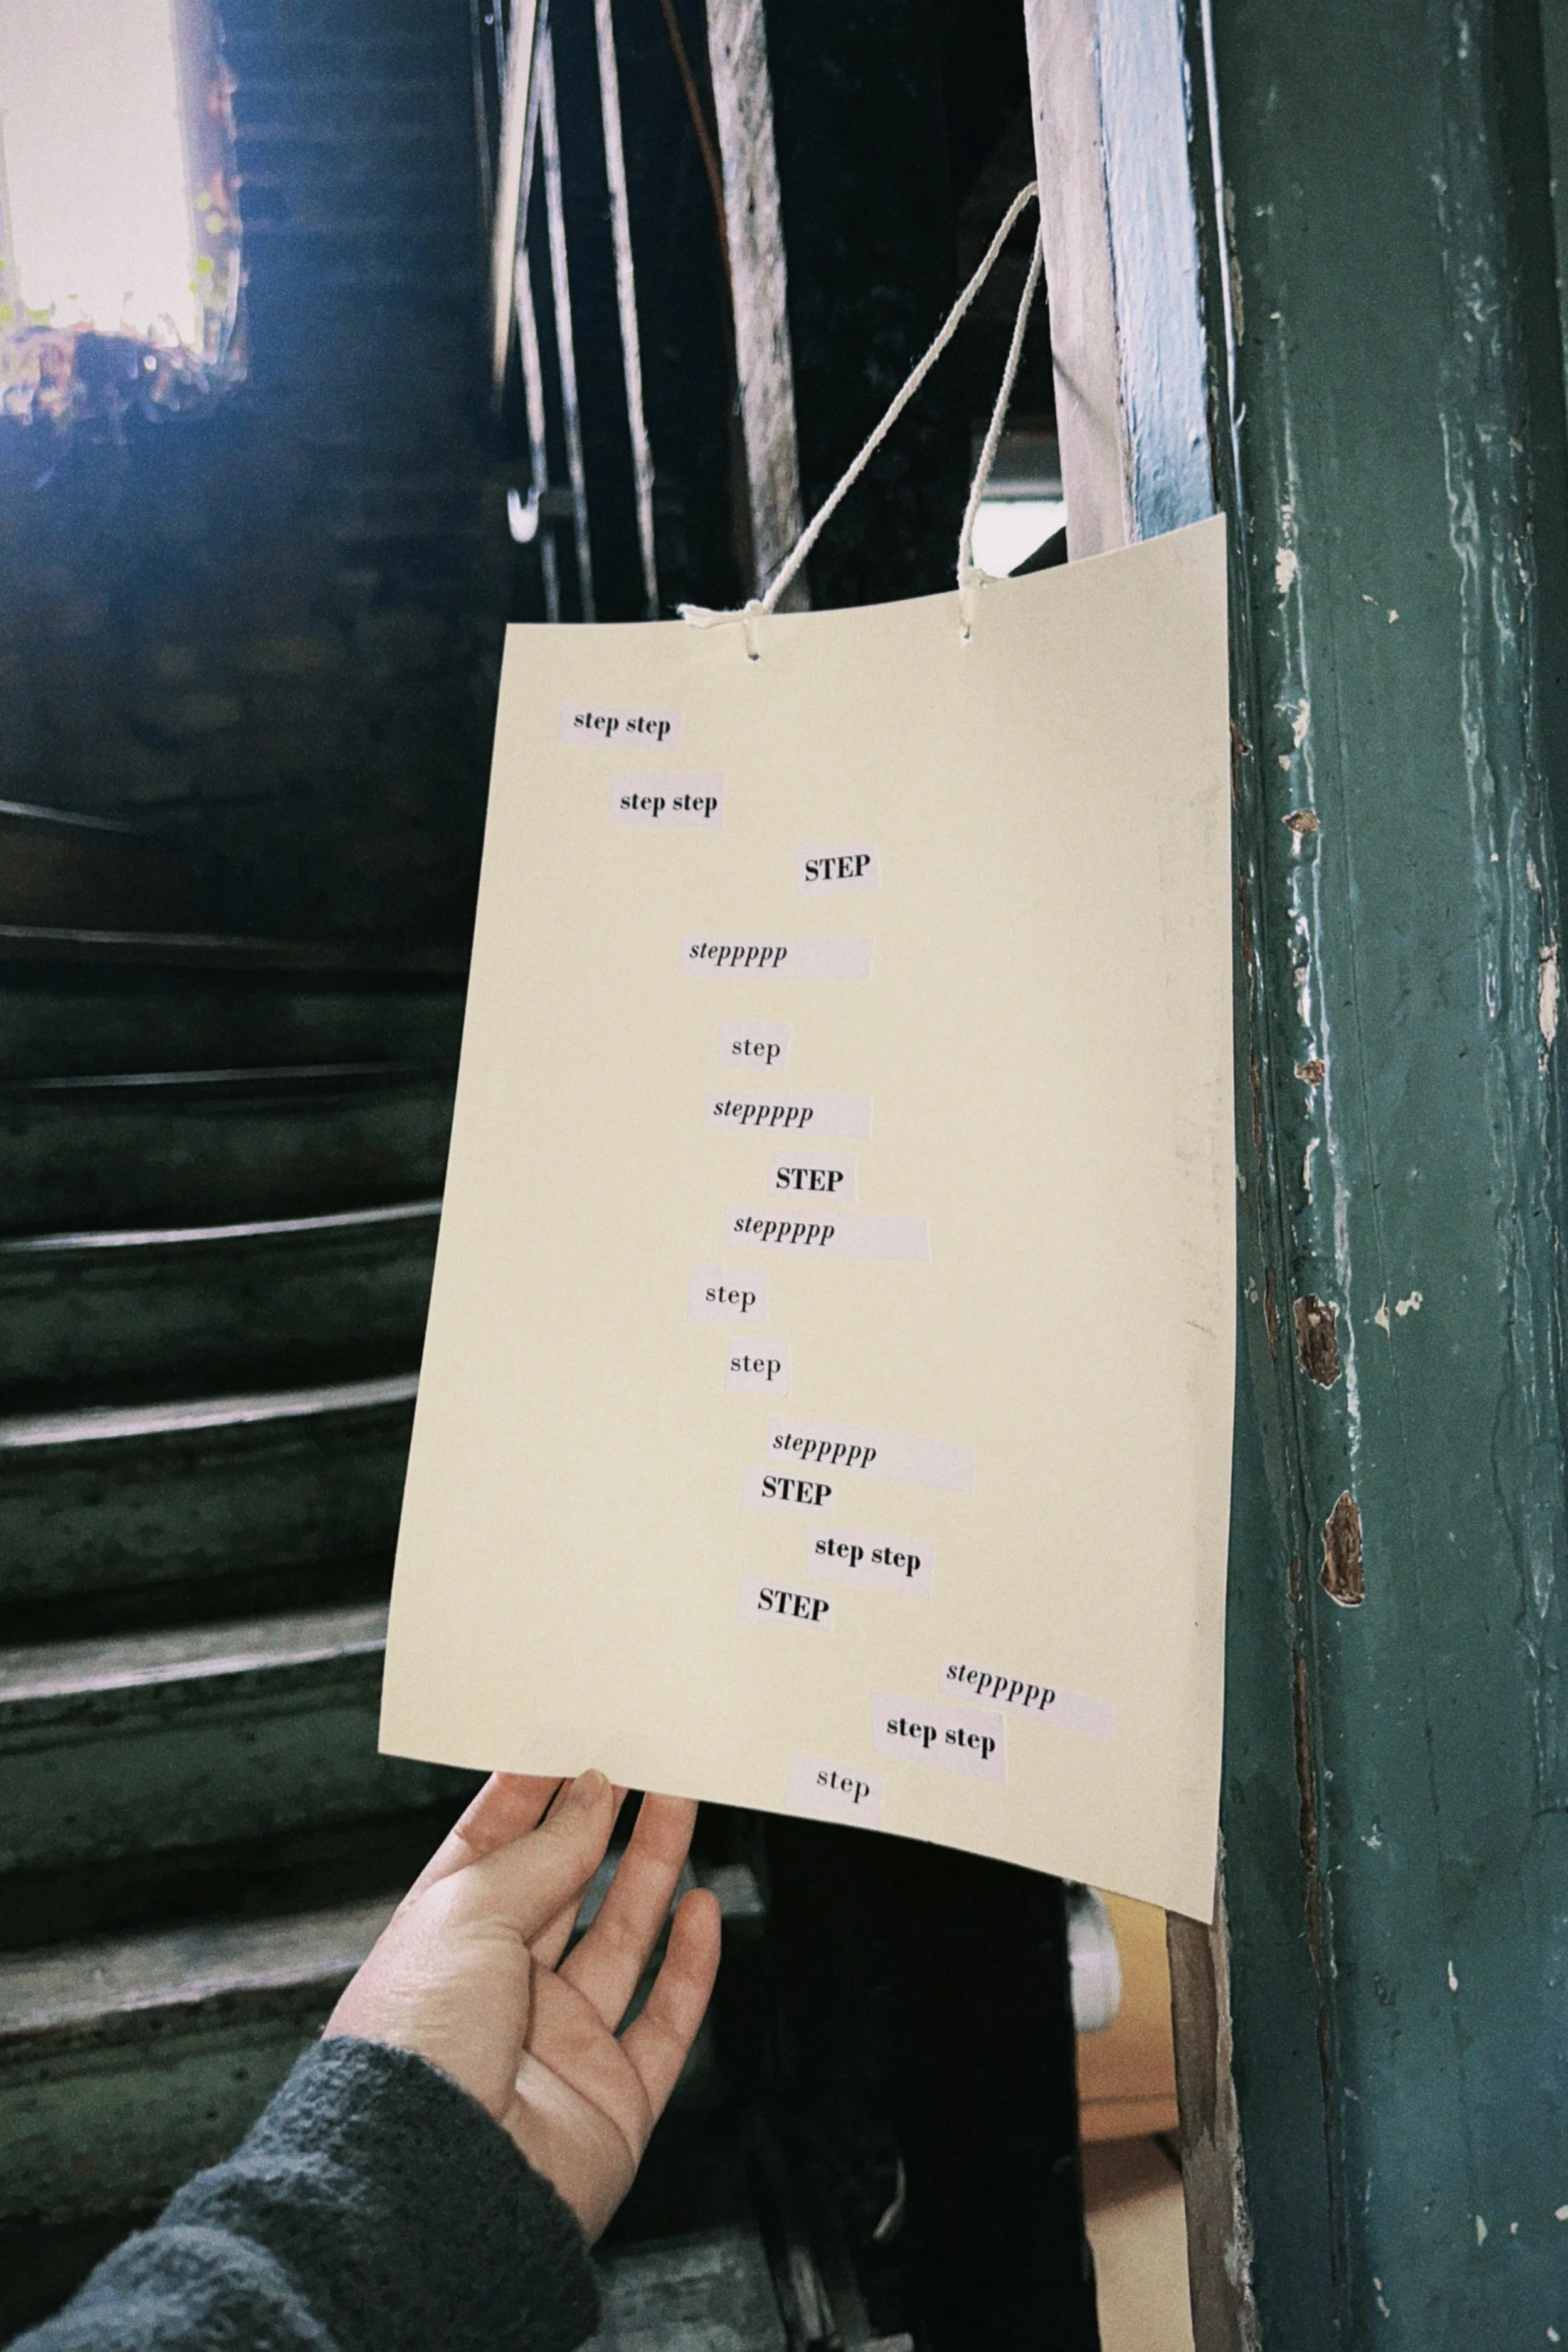 step step
step step
STEP
steppppp
step
steppppp
STEP
steppppp
step
step
steppppp
STEP
step step
STEP
steppppp
step step
step